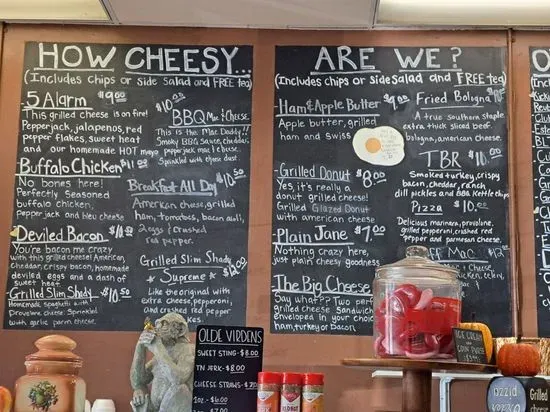 HOW CHEESY...
(Includes chips or side Salad and FREE tea)
5 Alarm $9.00
This grilled cheese is on fire!
Pepperjack, jalapenos, red
pepper flakes, sweet heat
and our homemade HOT mayo
Buffalo Chicken $11.00
No bones here!
Perfectly seasoned
buffalo chicken,
pepper jack and bleu cheese
Deviled Bacon
You're bacon me crazy
with this grilled cheese! American,
cheddar, crispy bacon, homemade
deviled eggs and a dash of
sweet heat.
Grilled Slim Shady $10.50
Homemade spaghetti with
Provolone cheese. Sprinkled
with garlic parm cheese.
$10.00
BBQ Mac & Cheese
This is the Mac Daddy!!
Smoky BBQ sauce, cheddar,
pepperjack mac & cheese.
Sprinkled with cheese dust
Breakfast All Day $10.50
American cheese, grilled
ham, tomatoes, bacon aioli,
2 eggs & crushed
red pepper.
Grilled Slim Shady
Supreme $12.00
Like the original with
extra cheese, pepperoni,
and crushed red pepper
flakes.
ARE WE?
(Includes chips or side Salad and FREE tea)
Ham & Apple Butter $9.00
Apple butter, grilled
ham and swiss
Grilled Donut $8.00
Yes, it's really a
donut grilled cheese!
Grilled Glazed Donut
with american cheese
Plain Jane $7.00
Nothing crazy here,
just plain cheesy goodness
The Big Cheese
Say what?? Two
grilled cheese
Enveloped in your choice
ham, turkey or bacon
Fried Bologna
A true southern staple
extra thick sliced beef
bologna, american cheese.
TBR $10.00
Smoked turkey, crispy
bacon, cheddar, ranch
dill pickles and BBQ Kettle chips
Pizza $10.00
Delicious marinara, provolone,
grilled pepperoni, crushed red
pepper and parmesan cheese.
Mac
OLDE VIRDENS
SWEET STING - $8.00
TN JERK - $8.00
CHEESE STRAWS - $7
1OZ - $6.00
ICE CREAM